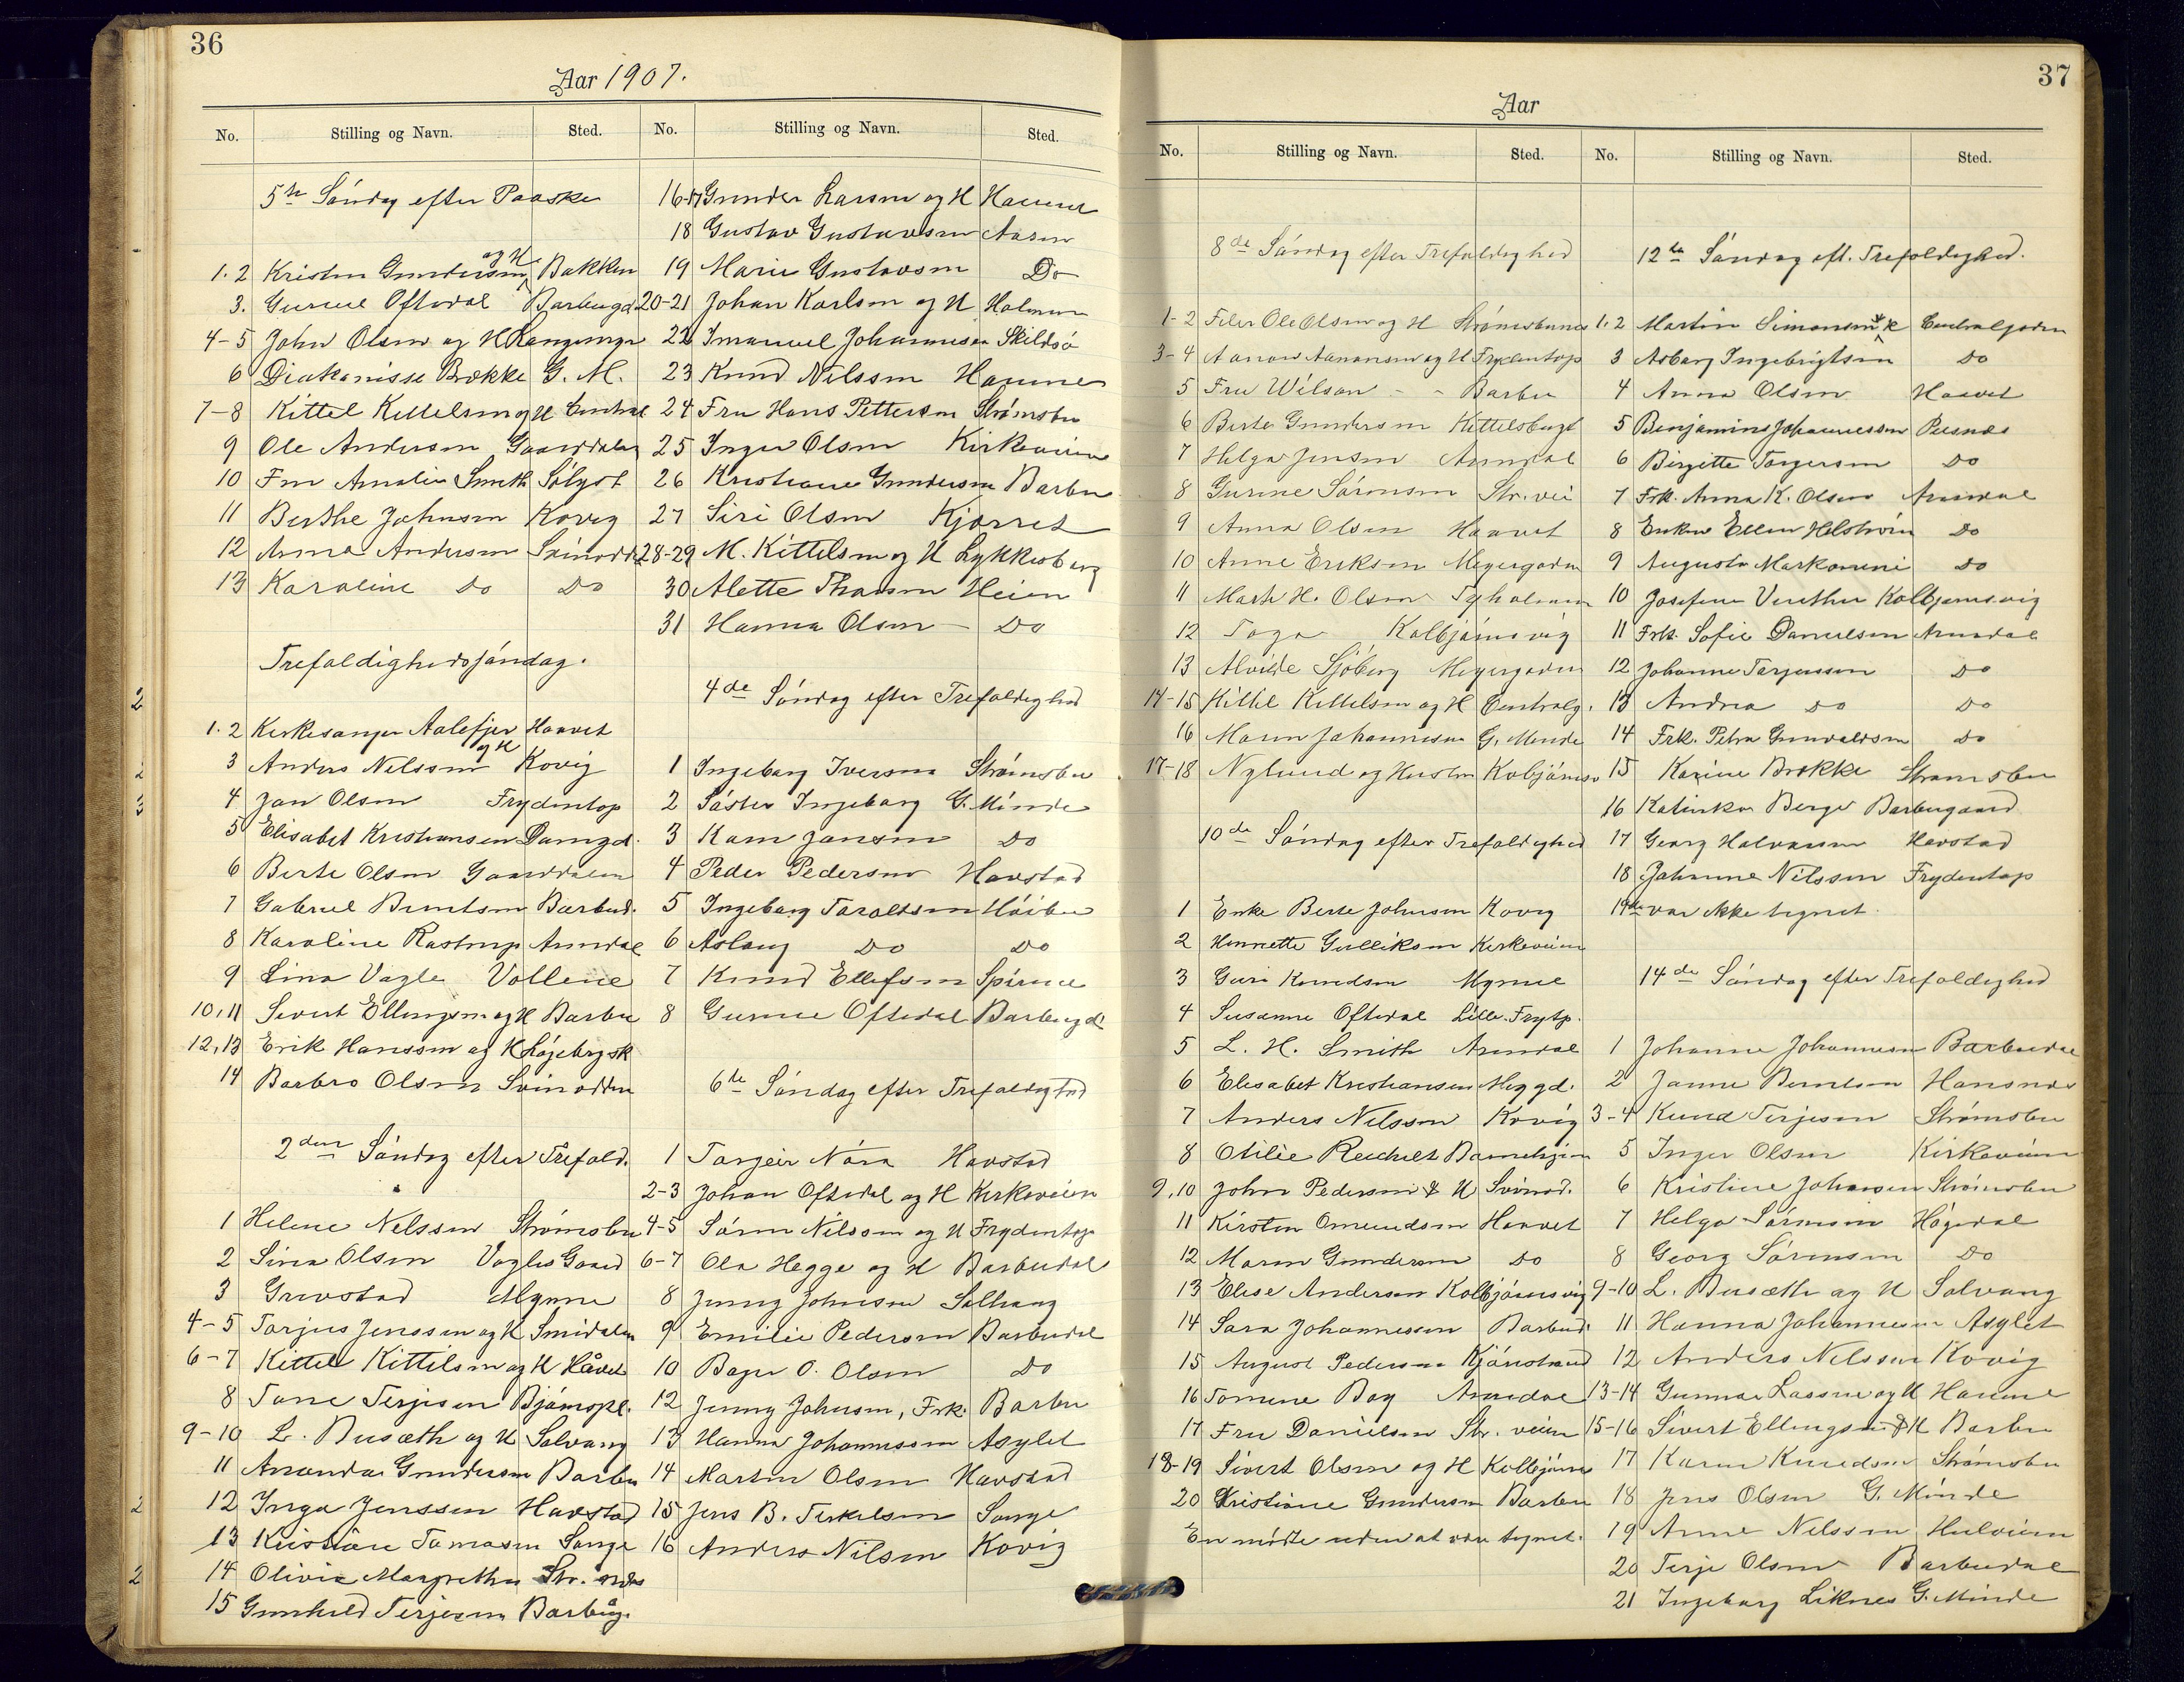 36
Aar 1907.
No. Stilling og Navn. Sted.
5te Søndag efter Paaske
1.2 Kristen Gundersen og H Bakken
3. Gurine Oftedal Barbugd
4-5 John Olsen og H Langunger
6 Diakonisse Brække G. M.
7-8 Kittel Kittelsen og H Central
9 Ole Andersen Gaarddalen
10 Fru Amalie Smith Sólyst
11 Berthe Johnsen Kovig
12 Anna Andersen Svinodd
13 Karoline Do Do
Trefoldighedssøndag.
1.2 Kirkesanger Aalefjer og H Haavet
3 Anders Nelssen Kovig
4 Jan Olsen Frydentop
5 Elisabet Kristiansen Damgd.
6 Berte Olsen Gaarddalen
7 Gabriel Berntsen Barbud.
8 Karoline Rastrup Arendal
9 Lina Vagle Vollene
10,11 Sivert Ellingsen og H Barbu
12,13 Erik Hanssen og H Løgebrysk
14 Barbro Olsen Svinodden
2den Søndag efter Trefold.
1 Helene Nelssen Strømsbu
2 Sina Olsen Vagles Gaard
3 Grevstad Myrene
4-5 Torjus Jenssen og H Smidalen
6-7 Kittel Kittilsen og H Håvet
8 Tone Terjesen Bjørnspl.
9-10 L. Busæth og H Solvang
11 Amanda Gundersen Barbu
12 Inga Jenssen Havstad
13 Kristiane Tomasen Songe
14 Olivia Margrethe Str.
15 Gunhild Terjesen Barbug.
No. Stilling og Navn. Sted.
16-17 Gunder Larsen og H Haune
18 Gustav Gustavsen Aasen
19 Marie Gustavsen Do
20-21 Johan Karlsen og H Holmen
22 Imanuel Johannesen Skildsø
23 Knud Nilssen Haune
24 Fru Hans Pettersen Strømsbu
25 Inger Olsen Kirkeveien
26 Kristiane Gundersen Barbu
27 Siri Olsen Kjørret
28-29 M. Kittelsen og H Lykkesborg
30 Alette Thorsen Heien
31 Hanna Olsen Do
4de Søndag efter Trefoldighed
1 Ingeborg Iversen Strømsbu
2 Søster Ingeborg G. Minde
3 Karen Jansen Do
4 Peder Pedersen Havstad
5 Ingeborg Taraldsen Høibu
6 Aslaug Do Do
7 Knud Ellefsen Spirene
8 Gurine Oftedal Barbugd
6te Søndag efter Trefoldighed
1 Torgeir Nóra Havstad
2-3 Johan Oftedal og H Kirkeveien
4-5 Søren Nilssen og H Frydentop
6-7 Ola Hegge og H Barbudal
8 Jenny Johnsen Solhaug
9 Emilie Pedersen Barbudal
10 Boger O. Olsen Do
12 Jenny Johnsen, Frk. Barbu
13 Hanna Johannessen Asylet
14 Martin Olsen Havstad
15 Jens B. Terkelsen Songe
16 Anders Nilsen Kovig
37
Aar
No. Stilling og Navn. Sted.
8de Søndag efter Trefoldighed
1-2 Feler Ole Olsen og H Strømsbunes
3-4 Aanon Aanonsen og H Frydentop
5 Fru Wilson - - Barbu
6 Berte Gundersen Kittelsbugt
7 Helga Jensen Arendal
8 Gurine Sørensen Str. vei
9 Anna Olsen Haavet
10 Anne Eriksen Meyergaden
11 Marte H. Olsen Tyholmen
12 Toga Kolbjørnsvig
13 Alvilde Sjøberg Meyergaden
14-15 Kittel Kittelsen og H Centralg.
16 Maren Johannesen G. Minde
17-18 Nylund og Hustru Kolbjørnsv
10de Søndag efter Trefoldighed
1 Enke Berte Johnsen Kovig
2 Henriette Gulliksen Kirkeveien
3 Guri Knudsen Myrene
4 Susanne Oftedal Lille. Frytp.
5 L. H. Smith Arendal
6 Elisabet Kristiansen Meygd.
7 Anders Nelssen Kovig
8 Otilie Reichelt Barnehjem
9,10 John Pedersen & H Svinod.
11 Kirsten Omundsen Haavet
12 Maren Gundersen Do
13 Elise Andersen Kolbjørnsvig
14 Sara Johannessen Barbud.
15 August Pedersen Kjønstrand
16 Tomine Bog Arendal
17 Fru Danielsen Str. veien
18-19 Sivert Olsen og H Kolbjørns
20 Kristiane Gundersen Barbu
En mødte uden at være tegnet.
No. Stilling og Navn. Sted.
12te Søndag eft. Trefoldighed.
1.2 Martin Simonsen & H Centralgaden
3 Asborg Ingebrigtsen Do
4 Anna Olsen Haavet
5 Benjamine Johannessen Pusnes
6 Birgitte Torgersen Do
7 Frk. Anna K. Olsen Arendal
8 Enken Ellen Helstrøm Do
9 Augusta Markomini Do
10 Josefine Venthen Kolbjørnsvig
11 Frk. Sofie Danielsen Arendal
12 Johanne Torjussen Do
13 Andrea Do Do
14 Frk. Petra Gunvaldsen Do
15 Karine Brække Strømsbu
16 Katinka Berge Barbugaard
17 Georg Halvorsen Havstad
18 Johanne Nilssen Frydentop
19de var ikke tegnet.
14de Søndag efter Trefoldighed
1 Johanne Johannesen Barbudal
2 Janne Berntsen Hansnes
3-4 Knud Terjesen Strømsbu
5 Inger Olsen Kirkeveien
6 Kristine Johansen Strømsbu
7 Helga Sørensen Høgedal
8 Georg Sørensen Do
9-10 L. Busæth og H Solvang
11 Hanna Johannesen Asylet
12 Anders Nelssen Kovig
13-14 Gunnar Lassen og H Haune
15-16 Sivert Ellingsen & H Barbu
17 Karen Knudsen Strømsbu
18 Jens Olsen G. Minde
19 Anne Nelssen Hulveien
20 Terje Olsen Barbudal
21 Ingeborg Liknes G. Minde